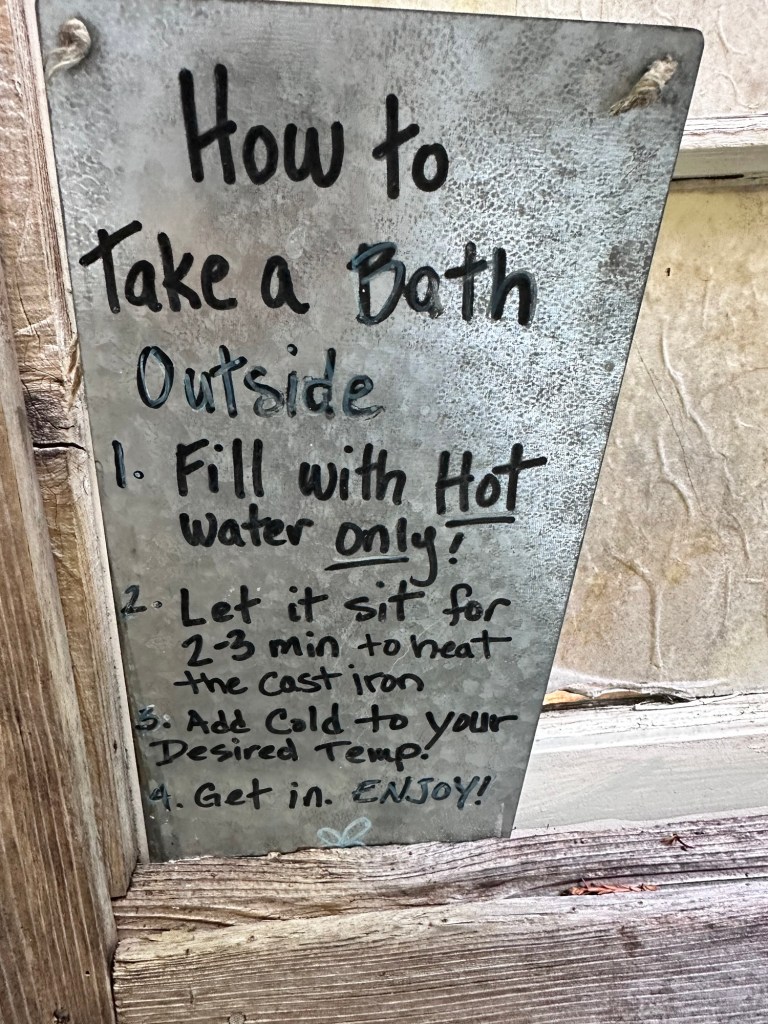 How to
Take a Bath
Outside
1. Fill with Hot
water only!
2. Let it sit for
2-3 min to heat
the cast iron
3. Add Cold to your
Desired Temp.
4. Get in. ENJOY!